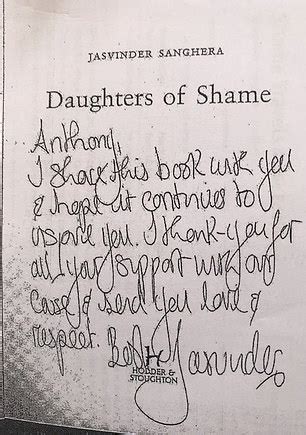 JASVINDER SANGHERA
Daughters of Shame
Anthony,
I share this book with you
& hope it continues to
inspire you. I thank-you for
all your support with our
cause & send you love &
respect. Best Jasvinder
HODDER &
STOUGHTON